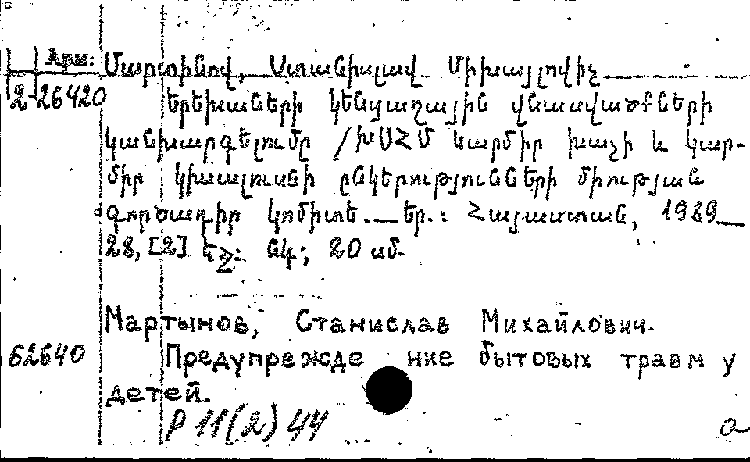 Արտ: Մարտինով, Ստանիսլավ Միխայլովիչ
2-26420 Երեխաների կենցաղային վնասվածքների
կանխարգելումը /ԽՍՀՄ Կարմիր խաչի և Կար-
միր կիսալուսնի ընկերությունների միության
գործադիր կոմիտե.__ Եր.: Հայաստան, 1989__
28, [2] եջ: նկ; 20 սմ.
Мартынов, Станислав Михайлович.
62640 Предупрежде ние бытовых травм у
детей.
Р 11(2) 44
а